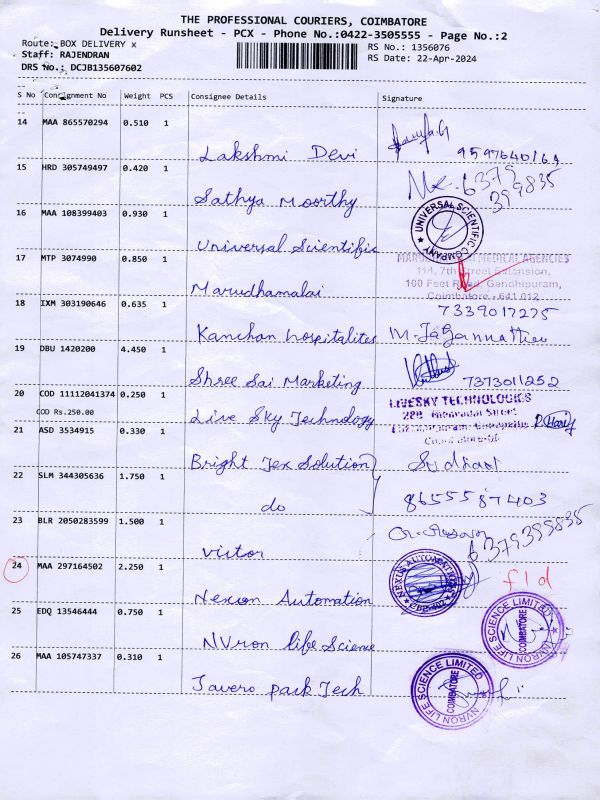 THE PROFESSIONAL COURIERS, COIMBATORE
Delivery Runsheet - PCX - Phone No.:0422-3505555 - Page No.:2
Route: BOX DELIVERY x
RS No.: 1356076
Staff: RAJENDRAN
RS Date: 22-Apr-2024
DRS No.: DCJB135607602
S No Consignment No Weight PCS Consignee Details Signature
14 MAA 865570294 0.510 1
Lakshmi Devi
15 HRD 305749497 0.420 1
6379
399835
Sathya Moorthy
16 MAA 108399403 0.930 1
UNIVERSAL SCIENTIFIC COMPANY
Universal Scientific
17 MTP 3074990 0.850 1
MEDICAL AGENCIES
114, 7th Street Extension,
100 Feet Road, Gandhipuram,
Coimbatore - 641 012
Marudhamalai
18 IXM 303190646 0.635 1
7339017275
Kanchan hospitalites
19 DBU 1420200 4.450 1
Shree Sai Marketing 7373011252
20 COD 11112041374 0.250 1
LIVESKY TECHNOLOGIES
COD Rs.250.00
Live Sky Technology
21 ASD 3534915 0.330 1
Bright Tex Solution
22 SLM 344305636 1.750 1
do
23 BLR 2050283599 1.500 1
Victor
24 MAA 297164502 2.250 1
NEXUS AUTOMATION
Nexon Automation
25 EDQ 13546444 0.750 1
NVRON LIFE SCIENCE LIMITED
COIMBATORE
NVron life Science
26 MAA 105747337 0.310 1
NVRON LIFE SCIENCE LIMITED
COIMBATORE
Javero park Tech